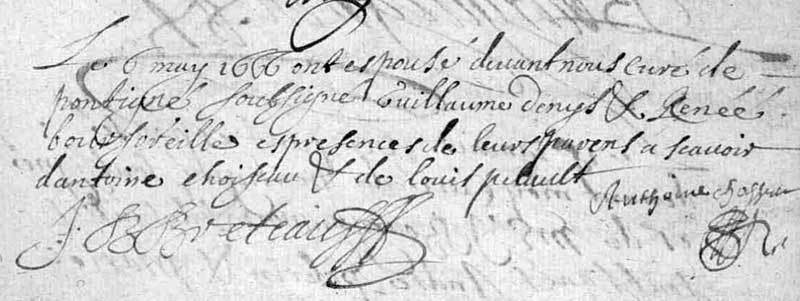 Le 6 may 1666 ont espousé devant nous curé de
pontigné soubsigné Guillaume denys & Renée
boursoreille es presences de leurs parens a scavoir
dantoine choiseau & de louis pelault
Anthoine
J. B Breteau